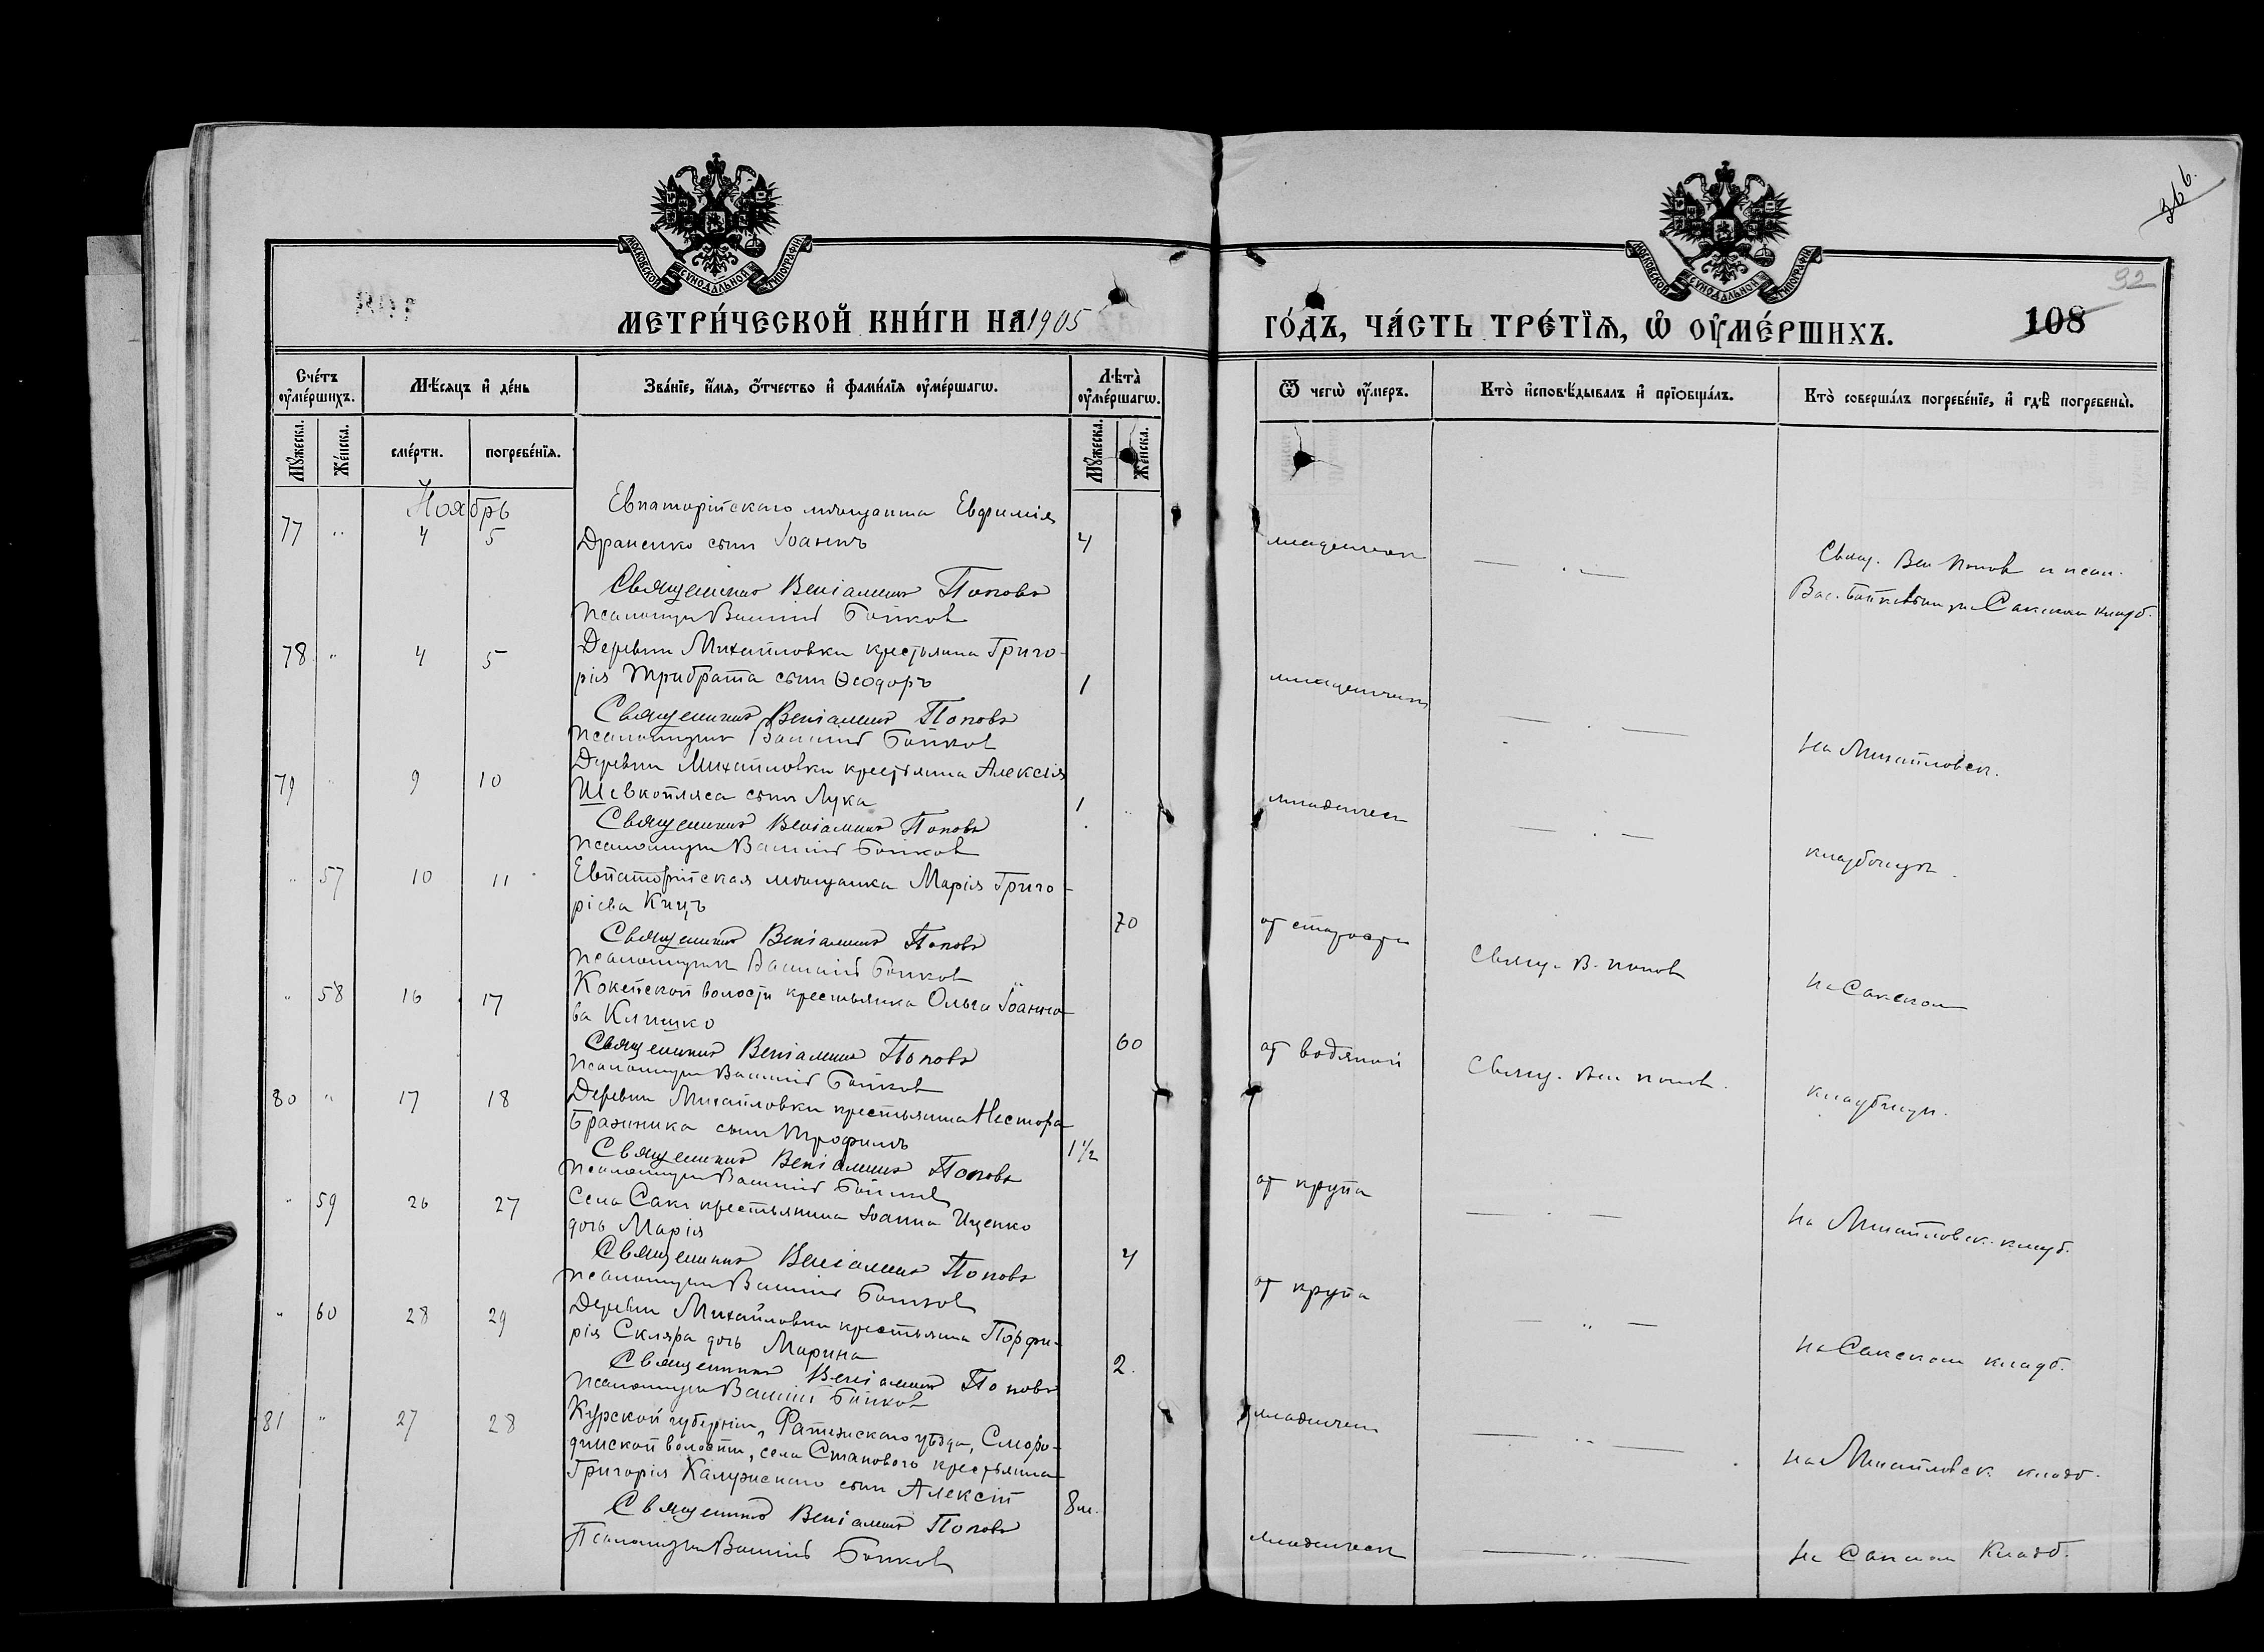 366.
92
МОСКОВСКОЙ СѴНОДАЛЬНОЙ ТИПОГРАФІИ
МОСКОВСКОЙ СѴНОДАЛЬНОЙ ТИПОГРАФІИ
МЕТРИ́ЧЕСКОЙ КНИ́ГИ НА 1905 ГО́ДЪ, ЧА́СТЬ ТРЕ́ТЇѦ, Ѡ҆ ОУ҆МЕ́РШИХЪ. 108
Сче́тъ оу҆ме́ршихъ.
Мѣ́сяцъ и҆ де́нь
Зва́нїе, и҆́мя, ѻ҆́тчество и҆ фамі́лїя оу҆ме́ршагѡ.
Лѣ́та̀ оу҆ме́ршагѡ.
Ѿ чегѡ̀ оу҆́меръ.
Кто̀ и҆сповѣ́дывалъ и҆ прїѻбща́лъ.
Кто̀ соверша́лъ погребе́нїе, и҆ гдѣ̀ погребены̀.
Мꙋ́жеска. Же́нска. сме́рти. погребе́нїя. Мꙋ́жеска. Же́нска.
Ноябрь
77 " 4 5 Евпаторійскаго мѣщанина Евфимія
Драненко сынъ Іоаннъ 4 младенческ — . — Свящ. Вен Попов и псал.
Вас. Бойков на Сакском кладб.
Священникъ Веніаминъ Поповъ
Псаломщик Василий Бойков
78 " 4 5 Деревни Михайловки крестьянина Григо-
рія Трибрата сынъ Ѳеодоръ 1 младенческ — . — на Михайловск.
Священникъ Веніаминъ Поповъ
Псаломщик Василий Бойков
79 " 9 10 Деревни Михайловки крестьянина Алексія
Шевкопляса сынъ Лука 1 младенческ — . — кладбищѣ.
Священникъ Веніаминъ Поповъ
Псаломщик Василий Бойков
" 57 10 11 Евпаторійская мѣщанка Марія Григо-
ріева Кицъ 70 от старости Свящ. В. Попов на Сакском
Священникъ Веніаминъ Поповъ
Псаломщик Василий Бойков
" 58 16 17 Кокейской волости крестьянка Ольга Іоанно-
ва Клишко 60 от водяной Свящ. Вен Попов. кладбищѣ.
Священникъ Веніаминъ Поповъ
Псаломщик Василий Бойков
80 " 17 18 Деревни Михайловки крестьянина Нестора
Бражника сынъ Трофимъ 1 1/2 от крупа — . — на Михайловск. кладб.
Священникъ Веніаминъ Поповъ
Псаломщик Василий Бойков
" 59 26 27 Села Саки крестьянина Іоанна Ищенко
дочь Марія 4 от крупа — " — на Сакском кладб.
Священникъ Веніаминъ Поповъ
Псаломщик Василий Бойков
" 60 28 29 Деревни Михайловки крестьянина Порфи-
рія Скляра дочь Марина 2. младенчес — " — на Михайловск. кладб.
Священникъ Веніаминъ Поповъ
Псаломщик Василий Бойков
81 " 27 28 Курской губерніи, Фатежскаго уѣзда, Сморо-
динской волости, села Становаго крестьянина
Григорія Калужскаго сынъ Алексій 8 м. младенческ — " — на Сакском кладб.
Священникъ Веніаминъ Поповъ
Псаломщик Василий Бойков